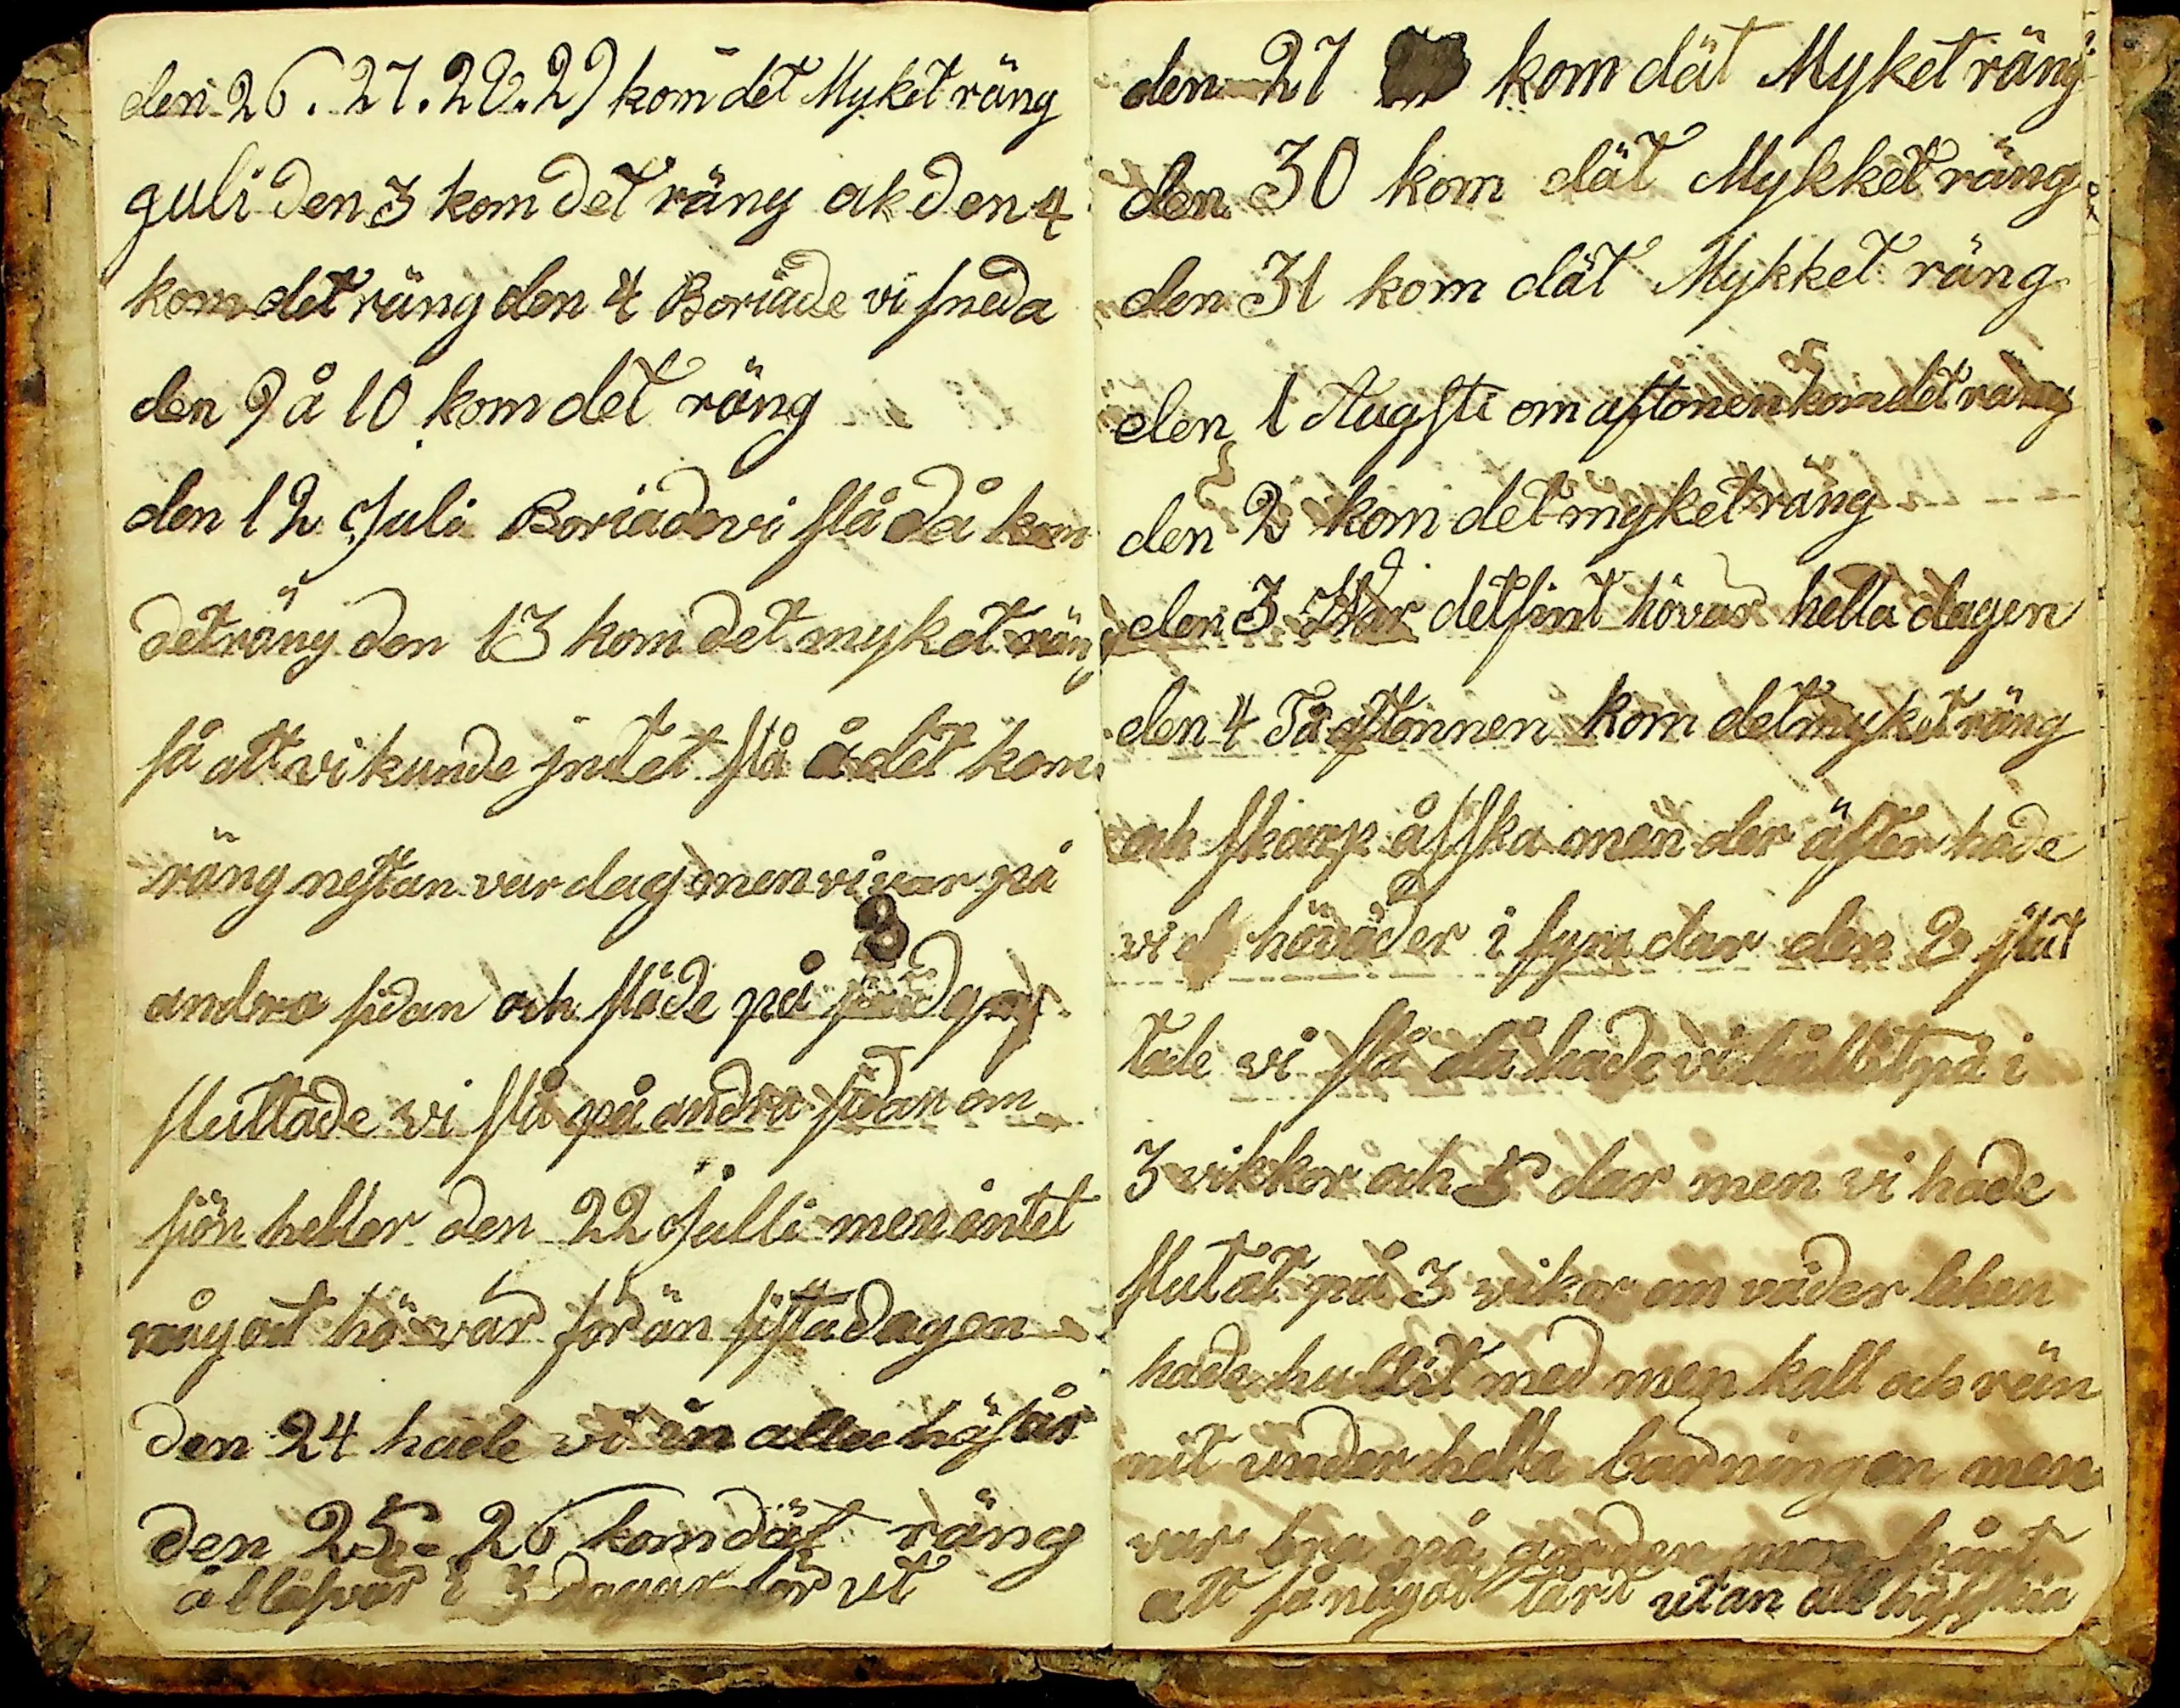 den 26. 27. 28. 29 kom det Myket räng
guli den 3 kom det räng ak den 4
kom det räng den 4 Boriade vi sneda
den 9 å 10 kom det räng
den 12 Juli Boriade vi slå då kom
det räng den 13 kom det myket räng
så att vi kunde jntet slå å det kom
räng nestan var dag men vi var på
andra sidan och slåde på
sluttade vi slå på andra sidan om
sjön heller den 22 Julli men intet
något hö var för än sista dagen
den 24 hade vi in alla
den 25 - 26 kom dät räng
i 3 dagar för ut
den 27 kom dät Myket räng
den 30 kom dät Mykket räng
den 31 kom dät Mykket räng
den 1 Augsti om aftonen kom det räng
den 2 kom det myket räng
den 3 Var det fint hövar hella dagen
den 4 På aftonnen kom det myket räng
och skarp åsska men der äfter hade
vi höväder i fyra dar den 8 slut
tade vi slå då hade vi hållit på i
3 vikkor och 5 dar men vi hade
slutat på 3 vikor om väder leken
hade hullit med men kalt och rän
nit under hella bärningen men
var bra på gården men
att få något tört utan att